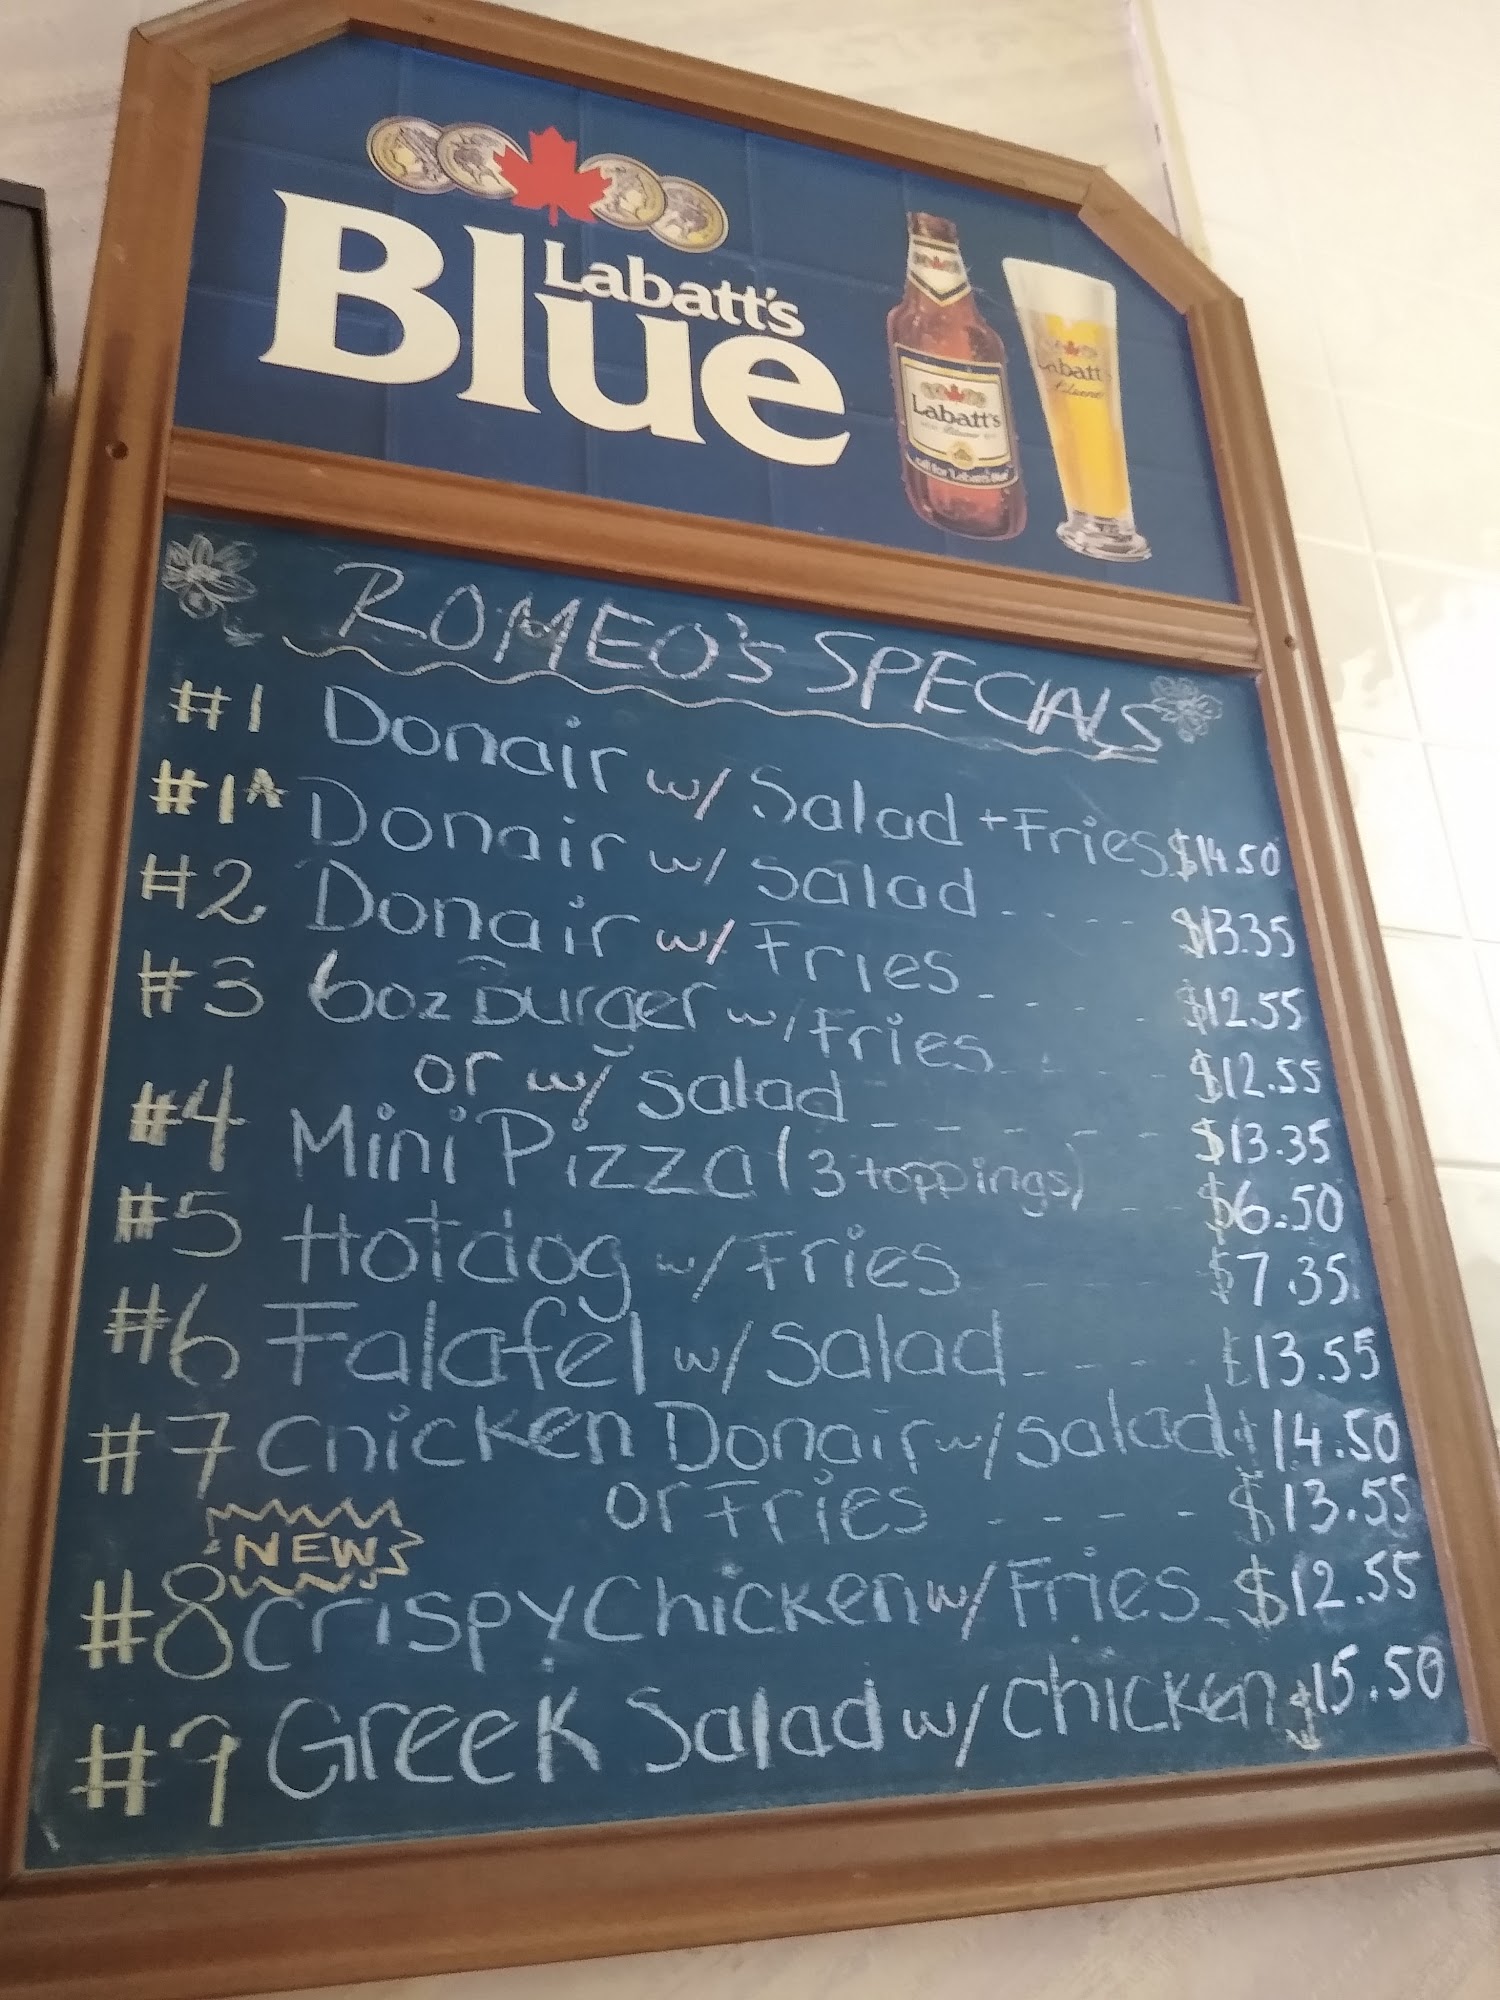 Labatt's
Blue
Labatt's
Labatt's
call for "Labatt's Blue"
ROMEO'S SPECIALS
#1 Donair w/ Salad + Fries $14.50
#1A Donair w/ Salad ---- $13.35
#2 Donair w/ Fries ---- $12.55
#3 6oz Burger w/ Fries ---- $12.55
or w/ Salad ------ $13.35
#4 Mini Pizza (3 toppings) -- $6.50
#5 Hotdog w/ Fries ---- $7.35
#6 Falafel w/ Salad ---- $13.55
#7 Chicken Donair w/ Salad $14.50
or Fries ---- $13.55
NEW
#8 Crispy Chicken w/ Fries - $12.55
#9 Greek Salad w/ Chicken $15.50